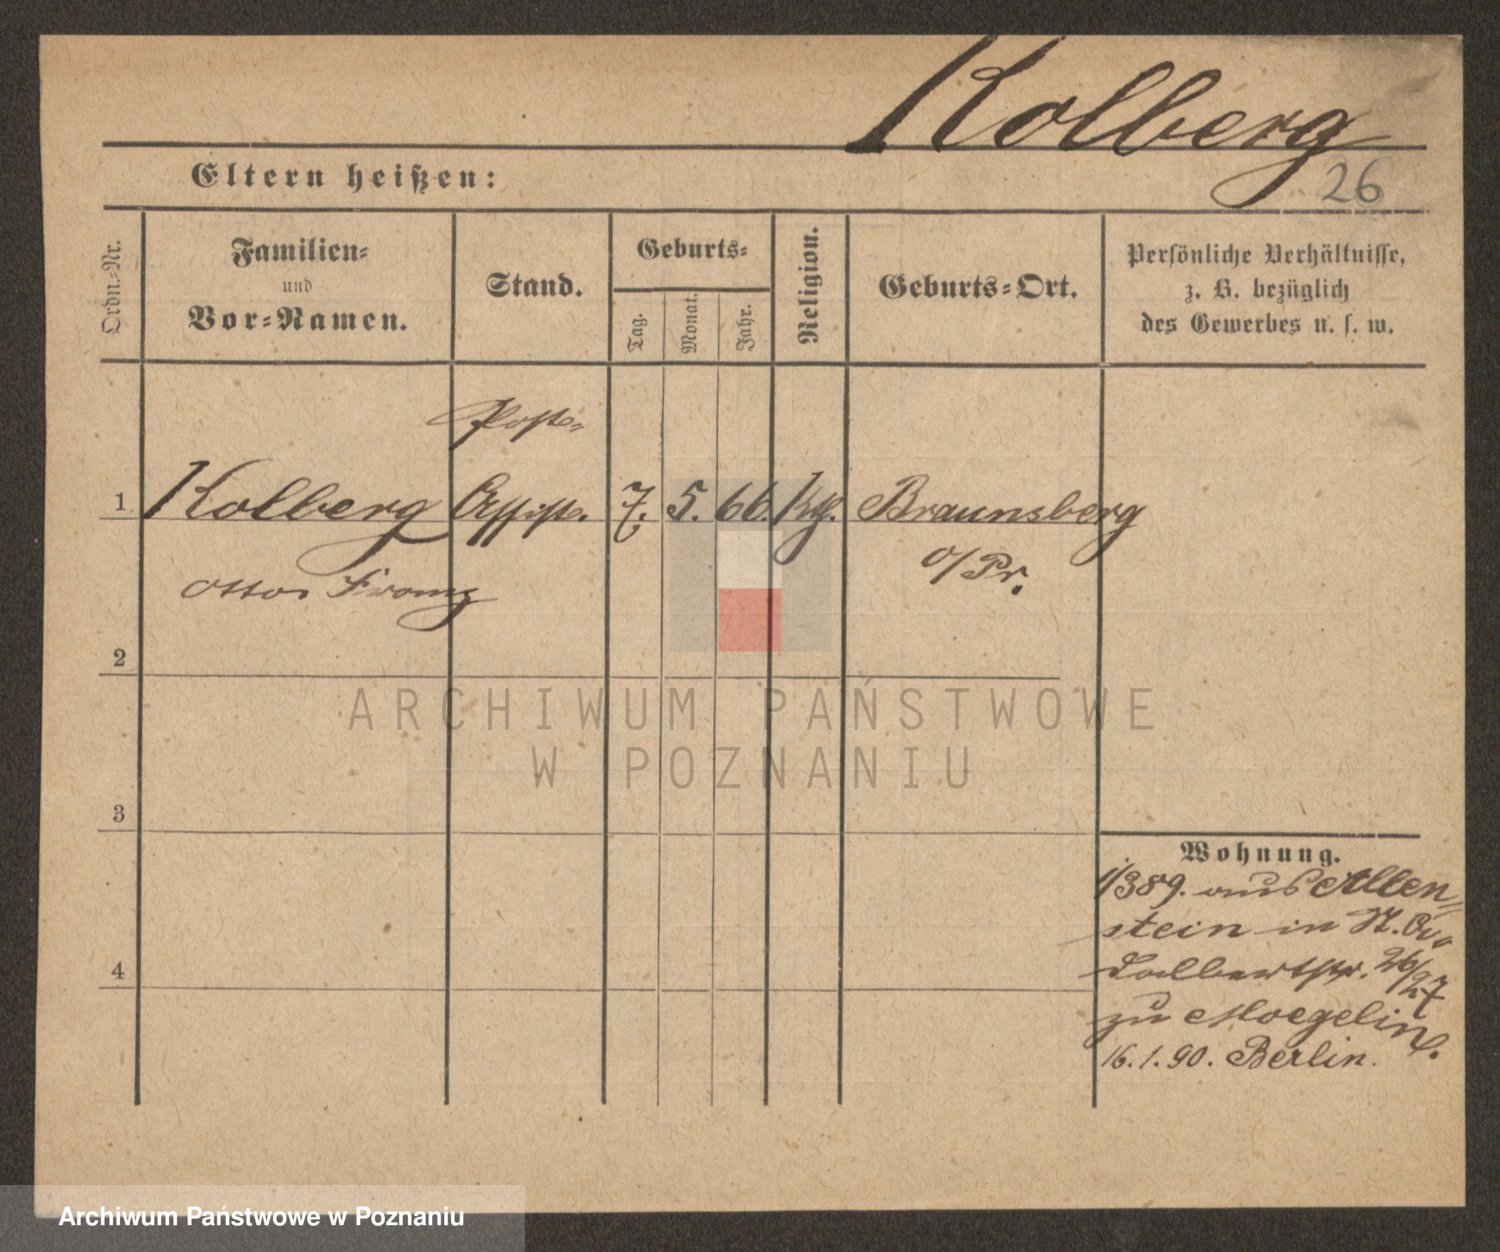 Kolberg
26
Eltern heißen:
Ordn.-Nr.
Familien-
und
Vor-Namen.
Stand.
Geburts-
Tag.
Monat.
Jahr.
Religion.
Geburts-Ort.
Persönliche Verhältnisse,
z. B. bezüglich
des Gewerbes u. s. w.
Post-
1 Kolberg Assist. 7. 5. 66. kth. Braunsberg
Otto Franz o/Pr.
2
3
4
Wohnung.
89. aus Allen-
stein in St. A-
dalbertstr. 26/27
zu Moegelin
16.1.90. Berlin.
ARCHIWUM PAŃSTWOWE
W POZNANIU
Archiwum Państwowe w Poznaniu